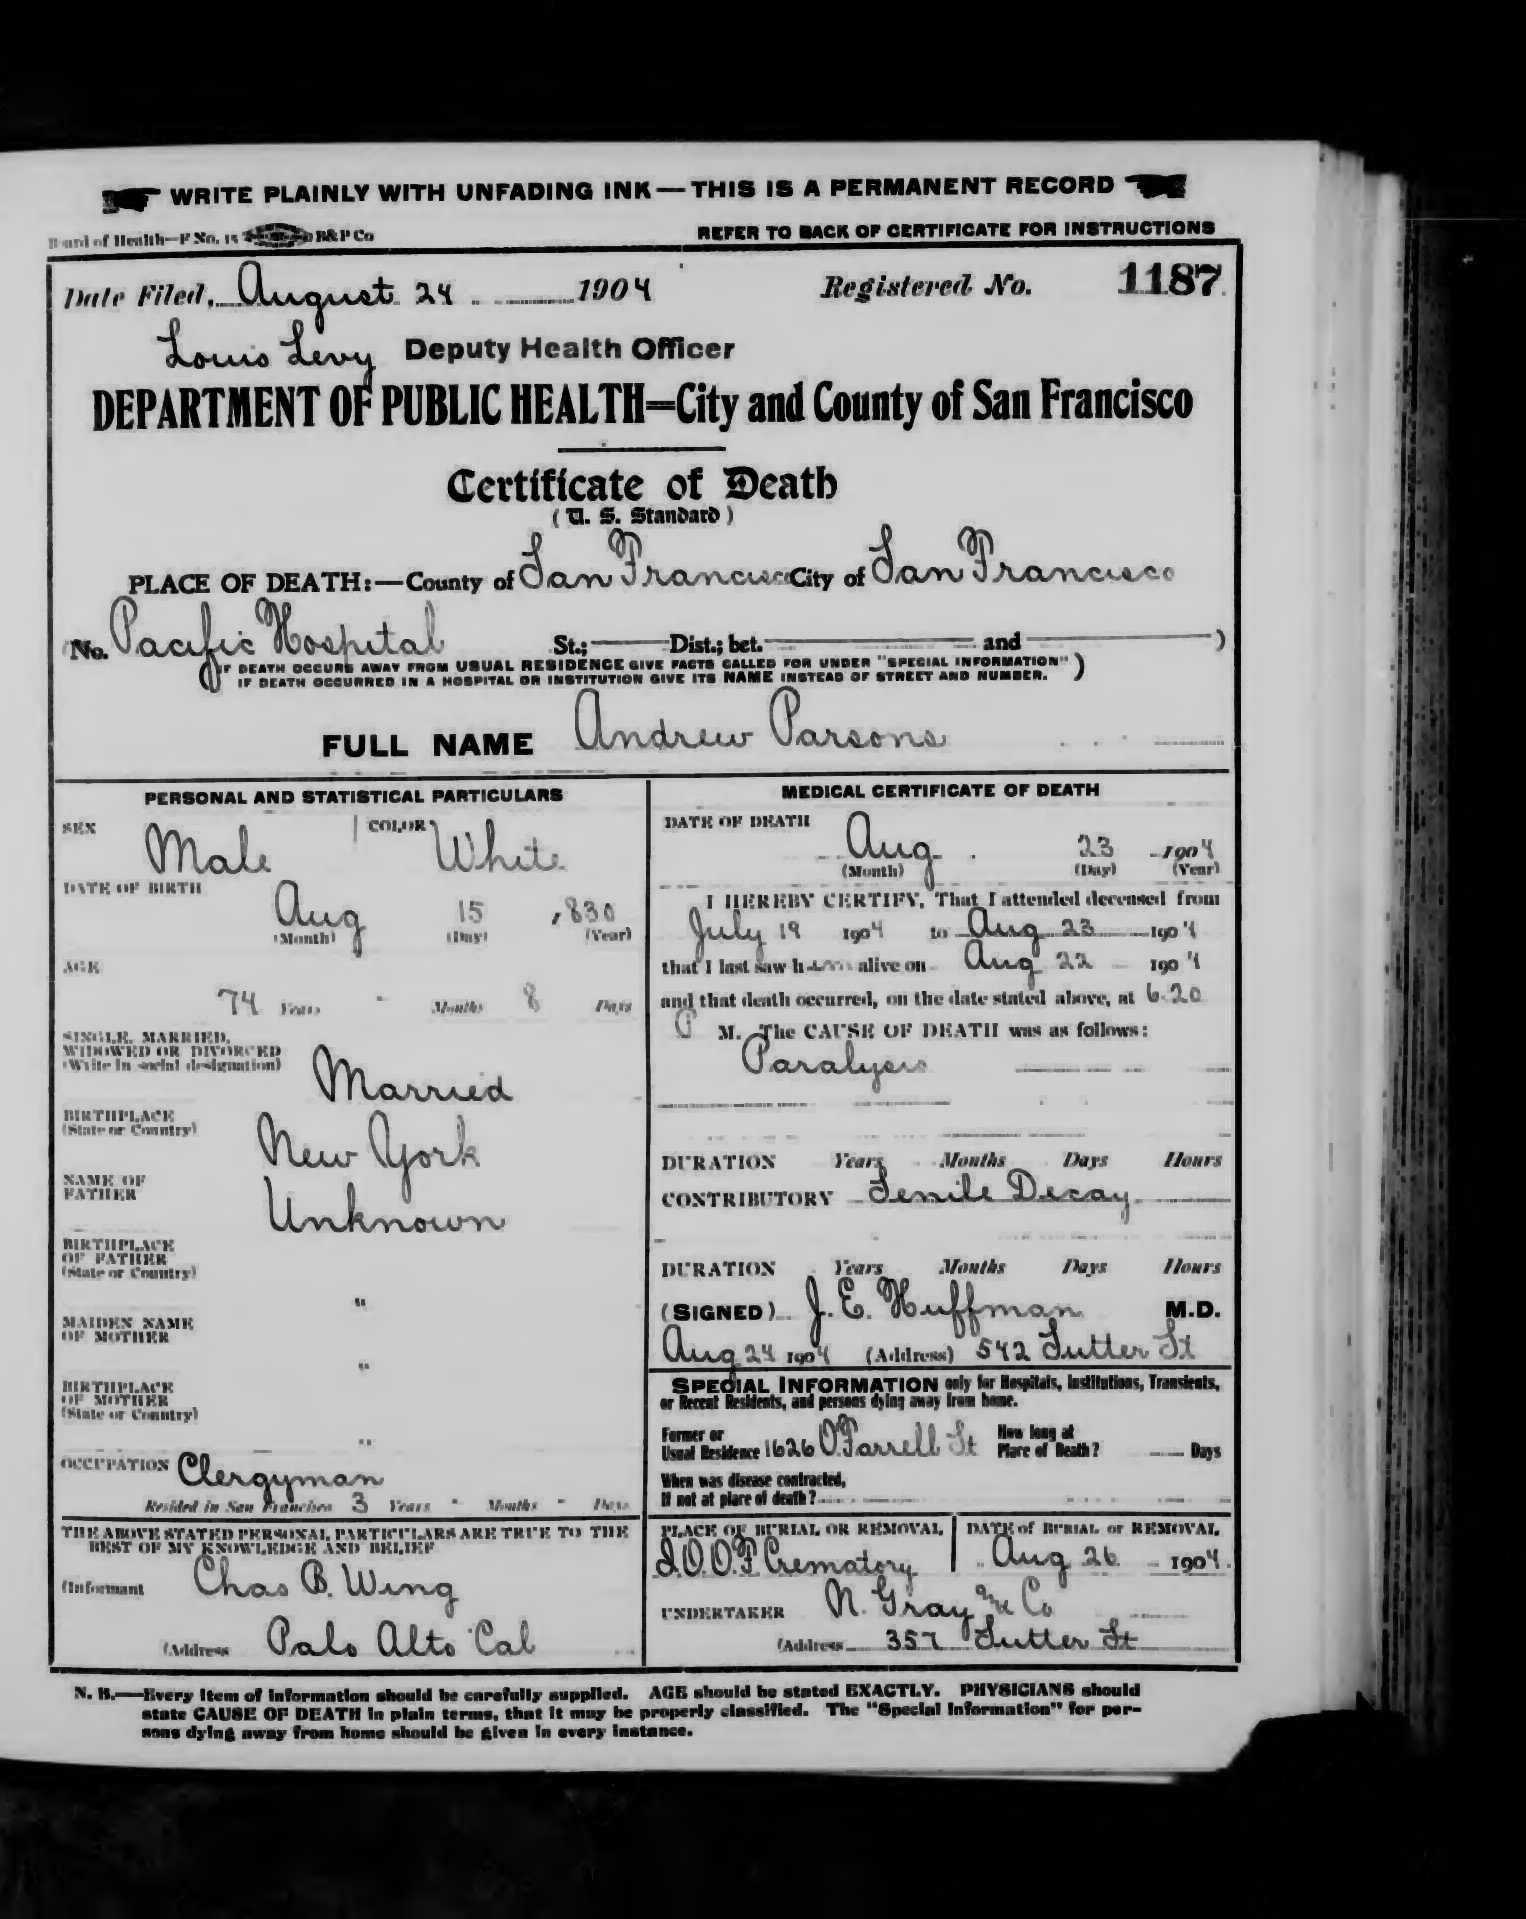 WRITE PLAINLY WITH UNFADING INK—THIS IS A PERMANENT RECORD
Board of Health—F No. 15 B&P Co
REFER TO BACK OF CERTIFICATE FOR INSTRUCTIONS
Date Filed, August 24 1904 Registered No. 1187
Louis Levy Deputy Health Officer
DEPARTMENT OF PUBLIC HEALTH=City and County of San Francisco
Certificate of Death
( U. S. Standard )
PLACE OF DEATH:—County of San Francisco City of San Francisco
(No. Pacific Hospital St.; Dist.; bet. and )
(IF DEATH OCCURS AWAY FROM USUAL RESIDENCE GIVE FACTS CALLED FOR UNDER "SPECIAL INFORMATION"
IF DEATH OCCURRED IN A HOSPITAL OR INSTITUTION GIVE ITS NAME INSTEAD OF STREET AND NUMBER.)
FULL NAME Andrew Parsons
PERSONAL AND STATISTICAL PARTICULARS
SEX Male COLOR White
DATE OF BIRTH
Aug 15 , 830
(Month) (Day) (Year)
AGE
74 Years " Months 8 Days
SINGLE, MARRIED,
WIDOWED OR DIVORCED
(Write in social designation)
Married
BIRTHPLACE
(State or Country)
New York
NAME OF
FATHER
Unknown
BIRTHPLACE
OF FATHER
(State or Country)
"
MAIDEN NAME
OF MOTHER
"
BIRTHPLACE
OF MOTHER
(State or Country)
"
OCCUPATION Clergyman
Resided in San Francisco 3 Years " Months " Days
THE ABOVE STATED PERSONAL PARTICULARS ARE TRUE TO THE
BEST OF MY KNOWLEDGE AND BELIEF
(Informant Chas B. Wing
(Address Palo Alto Cal
MEDICAL CERTIFICATE OF DEATH
DATE OF DEATH
Aug 23 1904
(Month) (Day) (Year)
I HEREBY CERTIFY, That I attended deceased from
July 19 1904 to Aug 23 1904
that I last saw him alive on Aug 22 1904
and that death occurred, on the date stated above, at 6.20
P M. The CAUSE OF DEATH was as follows:
Paralysis
DURATION Years Months Days Hours
CONTRIBUTORY Senile Decay
DURATION Years Months Days Hours
(SIGNED) J. E. Huffman M.D.
Aug 24 1904 (Address) 542 Sutter St
SPECIAL INFORMATION only for Hospitals, Institutions, Transients,
or Recent Residents, and persons dying away from home.
Former or
Usual Residence 1626 O'Farrell St
How long at
Place of Death? Days
When was disease contracted,
If not at place of death?
PLACE OF BURIAL OR REMOVAL
I.O.O.F Crematory
DATE of BURIAL or REMOVAL
Aug 26 1904
UNDERTAKER N. Gray & Co
(Address 357 Sutter St
N. B.—Every item of information should be carefully supplied. AGE should be stated EXACTLY. PHYSICIANS should
state CAUSE OF DEATH in plain terms, that it may be properly classified. The "Special Information" for per-
sons dying away from home should be given in every instance.